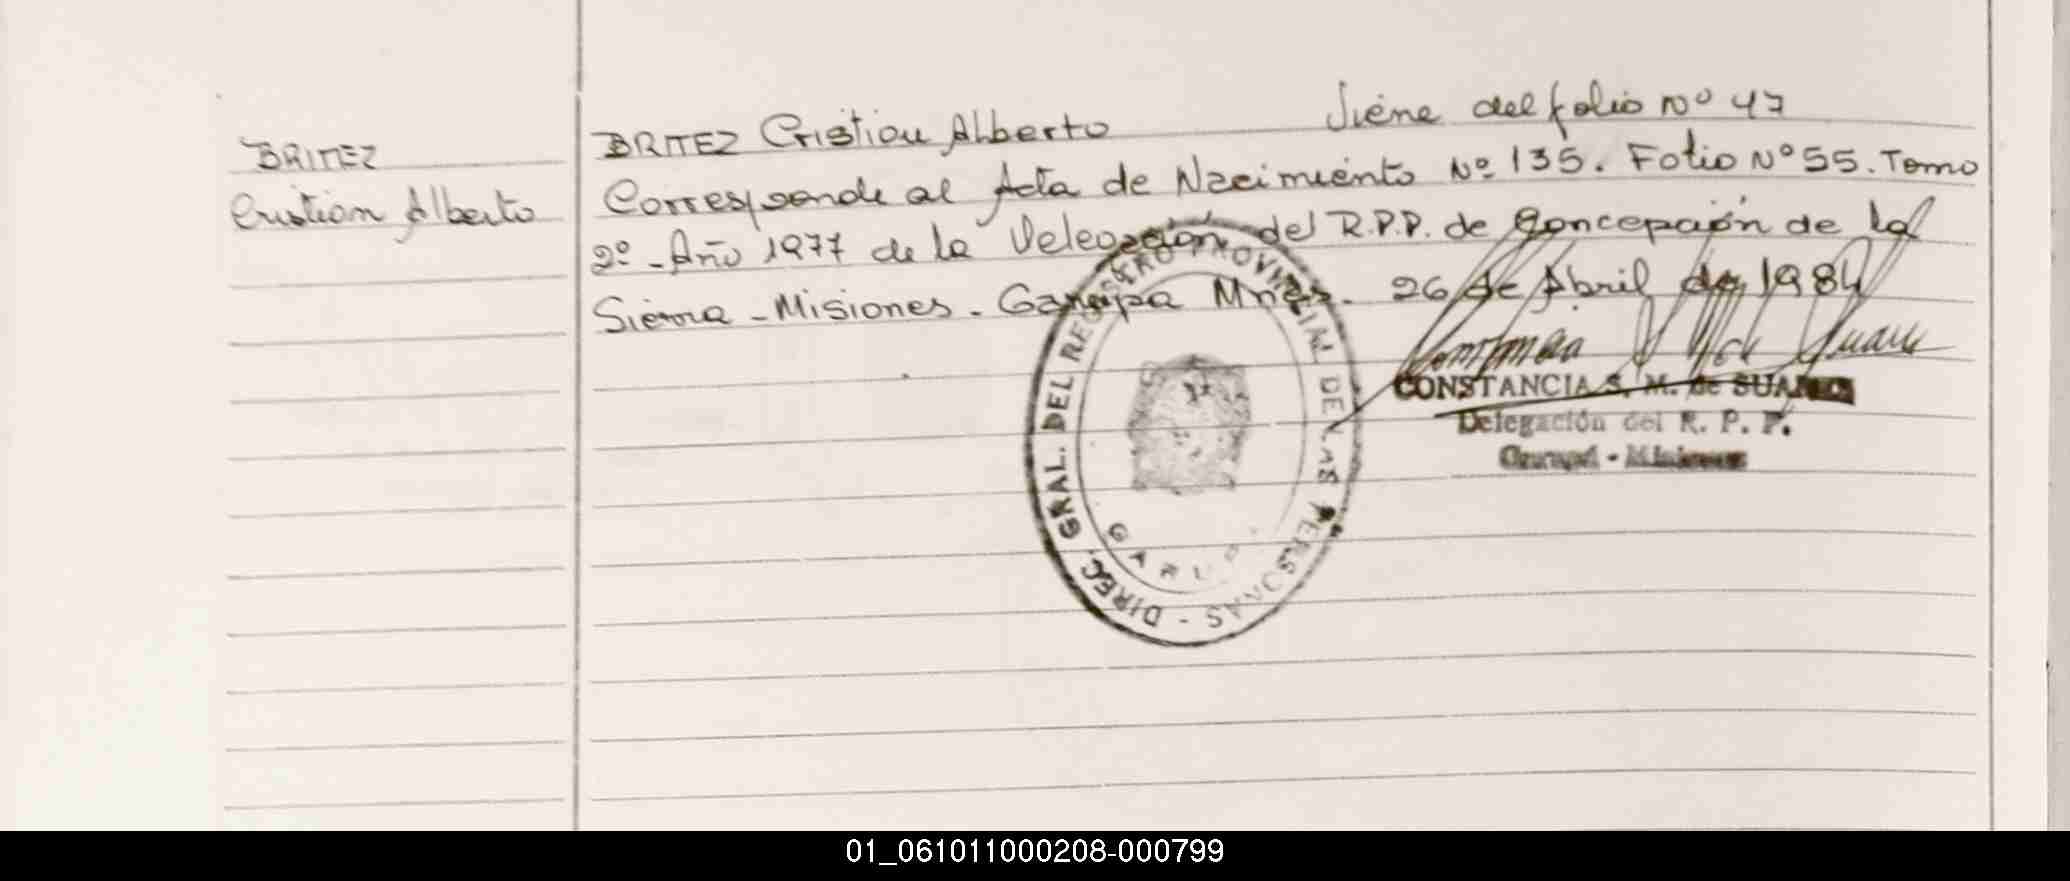 BRITEZ
Cristian Alberto
BRITEZ Cristian Alberto Viene del folio Nº 47
Corresponde al Acta de Nacimiento Nº 135. Folio Nº 55. Tomo
2º - Año 1977 de la Delegación del R.P.P. de Concepción de la
Sierra - Misiones - Garupa Mnes. 26 de Abril de 1984
CONSTANCIA S. M. de SUAREZ
Delegación del R. P. P.
Garupá - Misiones
DIREC. GRAL. DEL REGISTRO PROVINCIAL DE LAS PERSONAS -
GARUPA
01_061011000208-000799